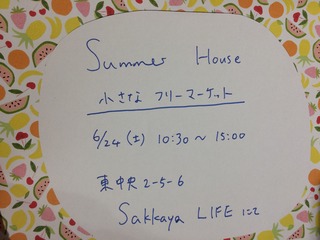 Summer House
小さな フリーマーケット
6/24 (土) 10:30 ~ 15:00
東中央 2-5-6
Sakkaya LIFE にて